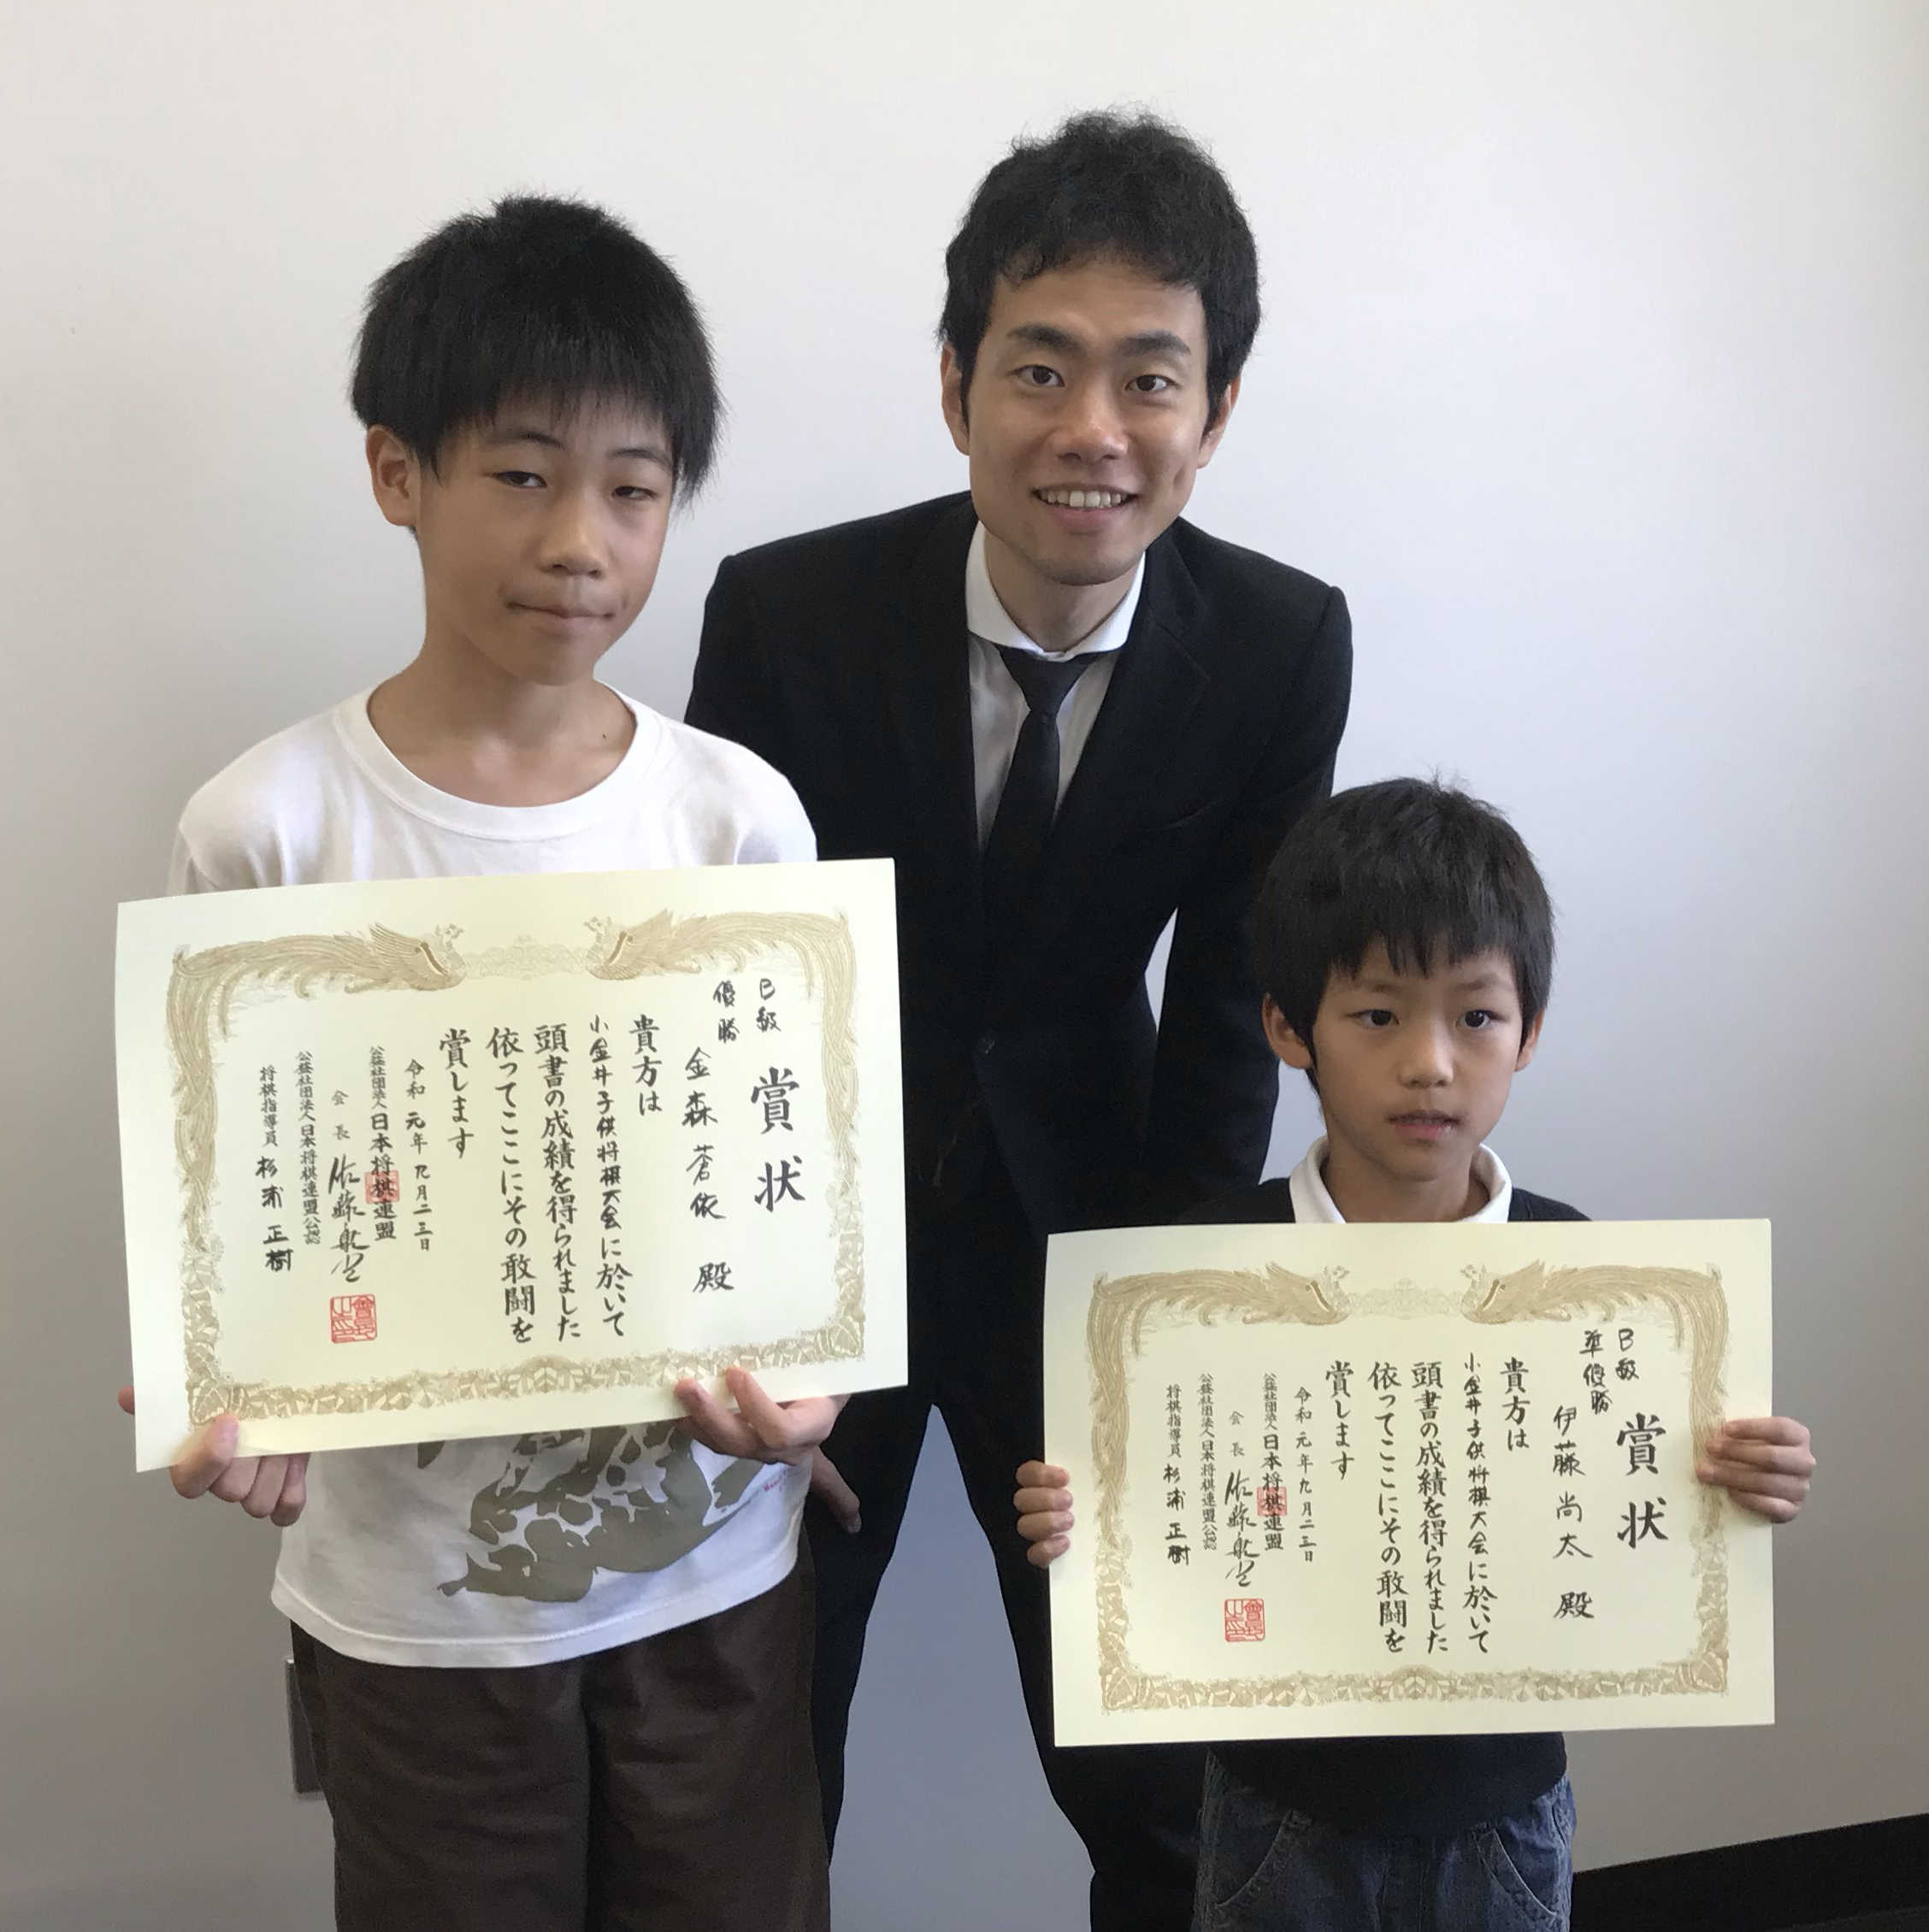 賞状
B級
優勝
金森蒼依 殿
貴方は
小金井子供将棋大会に於いて
頭書の成績を得られました
依ってここにその敢闘を
賞します
令和元年九月二三日
公益社団法人日本将棋連盟
会長 佐藤康光
公益社団法人日本将棋連盟公認
将棋指導員 杉浦正樹
賞状
B級
準優勝
伊藤尚太 殿
貴方は
小金井子供将棋大会に於いて
頭書の成績を得られました
依ってここにその敢闘を
賞します
令和元年九月二三日
公益社団法人日本将棋連盟
会長 佐藤康光
公益社団法人日本将棋連盟公認
将棋指導員 杉浦正樹